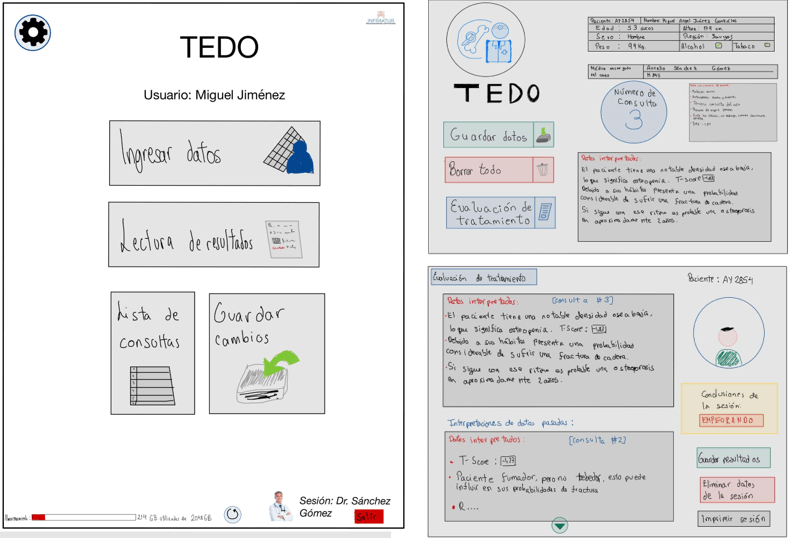 TEDO
Usuario: Miguel Jiménez
Ingresar datos
Lectura de resultados
Lista de
consultas
Guardar
cambios
Sesión: Dr. Sánchez
Gómez
Paciente: AY2854 Nombre: Miguel Angel Juárez
Edad : 53 años
Sexo : Hombre
Región:
Peso : 99Kg.
Alcohol
Tabaco
Médico encargado
Aurelio Sánchez Gómez
del caso
TEDO
Número de
consulta
3
Guardar datos
Borrar todo
Evaluación de
tratamiento
Datos interpretados:
El paciente tiene una notable densidad osea baja,
lo que significa osteopenia. T-score
Debido a sus hábitos presenta una probabilidad
considerable de sufrir una fractura de cadera.
Si sigue con ese ritmo es probable una osteoporosis
en aproximadamente 2 años.
Evaluación de tratamiento
Paciente: AY2854
Datos interpretados: [consulta #3]
El paciente tiene una notable densidad osea baja,
lo que significa osteopenia. T-score:
Debido a sus hábitos presenta una probabilidad
considerable de sufrir una fractura de cadera.
Si sigue con ese ritmo es probable una osteoporosis
en aproximadamente 2 años.
Conclusiones de
la sesión:
EMPEORANDO
Interpretaciones de datos pasadas:
Datos interpretados: [consulta #2]
T-Score :
Paciente fumador, pero no bebedor, esto puede
influir en sus probabilidades de fractura
R....
Guardar resultados
Eliminar datos
de la sesión
Imprimir sesión